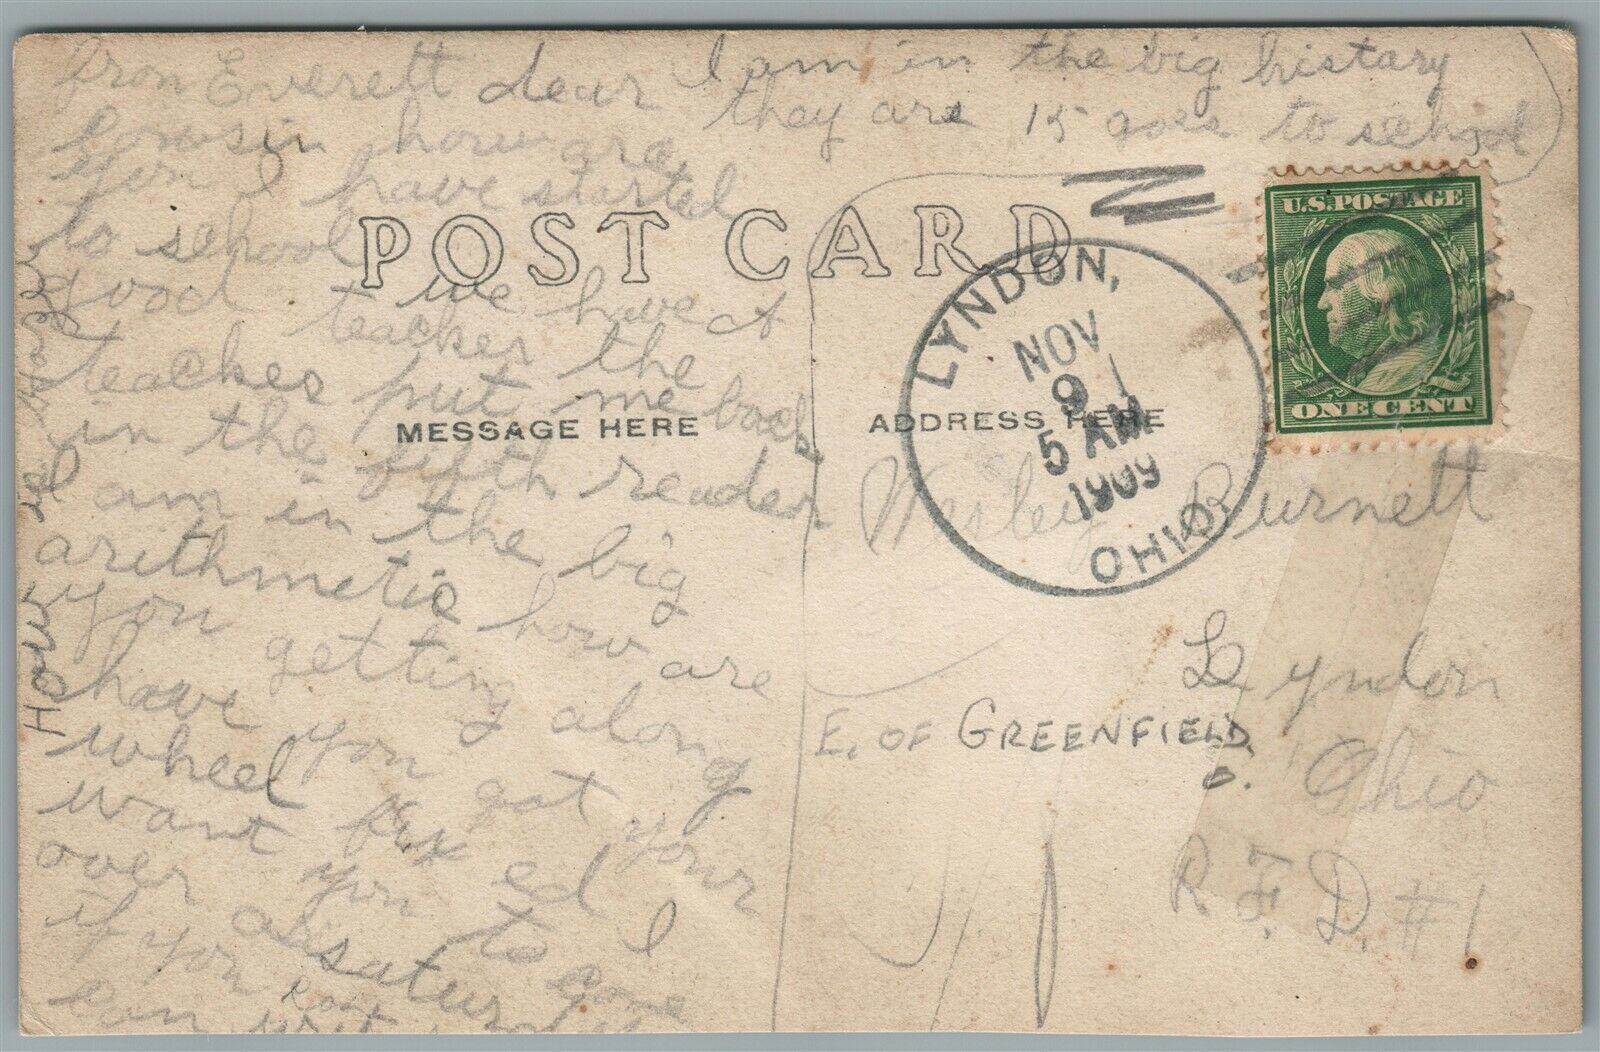 from Everett dear
cowsin howard
you I have started
to school
good we have A
teacher the
teaches put me back
in the fifth reader
I am in the big
arithmetic how
are
you getting along
have you got your
wheel fix ed I
want you to come
over a saturd
if you
can
I am in the big histary
they are 15 goes to school
How is Hazel
POST CARD
MESSAGE HERE
ADDRESS HERE
LYNDON,
NOV
9
5 AM
1909
OHIO
U.S. POSTAGE
ONE CENT
Wesley Burnett
Lyndon
E. OF GREENFIELD,
O.
Ohio
R.F.D. #1